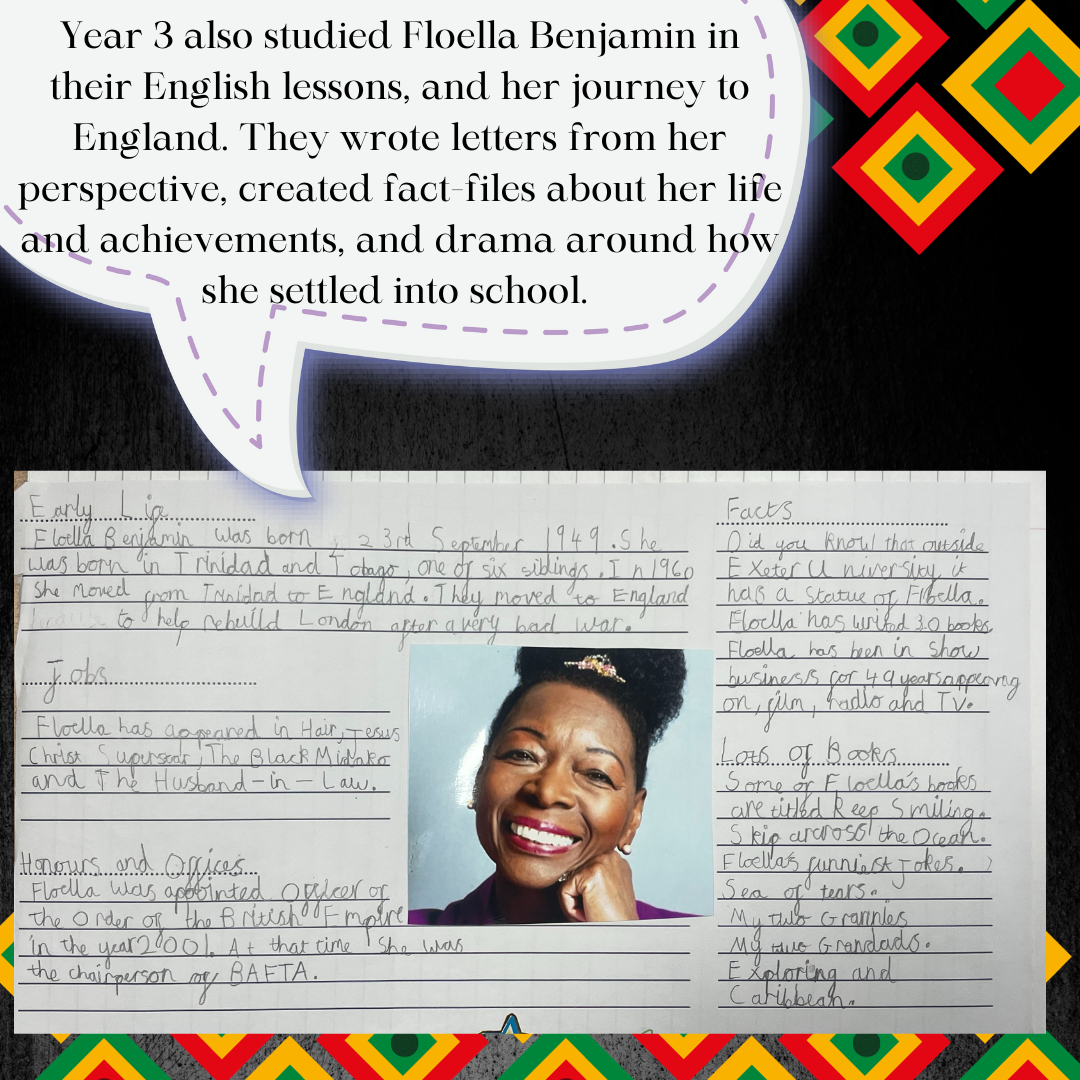 Year 3 also studied Floella Benjamin in
their English lessons, and her journey to
England. They wrote letters from her
perspective, created fact-files about her life
and achievements, and drama around how
she settled into school.
Early Life
Floella Benjamin was born 23rd September 1949. She
was born in Trinidad and Tobago, one of six siblings. In 1960
She moved from Trinidad to England. They moved to England
to help rebuild London after a very bad war.
Jobs
Floella has appeared in Hair, Jesus
Christ Superstar, The Black Mikako
and The Husband-in-Law.
Honours and Offices
Floella was apobinted Officer of
the Order of the British Empire
in the year 2001. At that time She was
the chairperson of BAFTA.
Facts
Did you know! that outside
Exeter University it
has a Statue of Floella.
Floella has writed 30 books
Floella has been in Show
business for 49 years appearing
on, film, radio and TV.
Lots of Books
Some of Floella's books
are titled Keep Smiling.
Skip arcross the Ocean.
Floella's funniest Jokes.
Sea of tears.
My two Grannies
My two Grandads.
Exploring and
Caribbean.